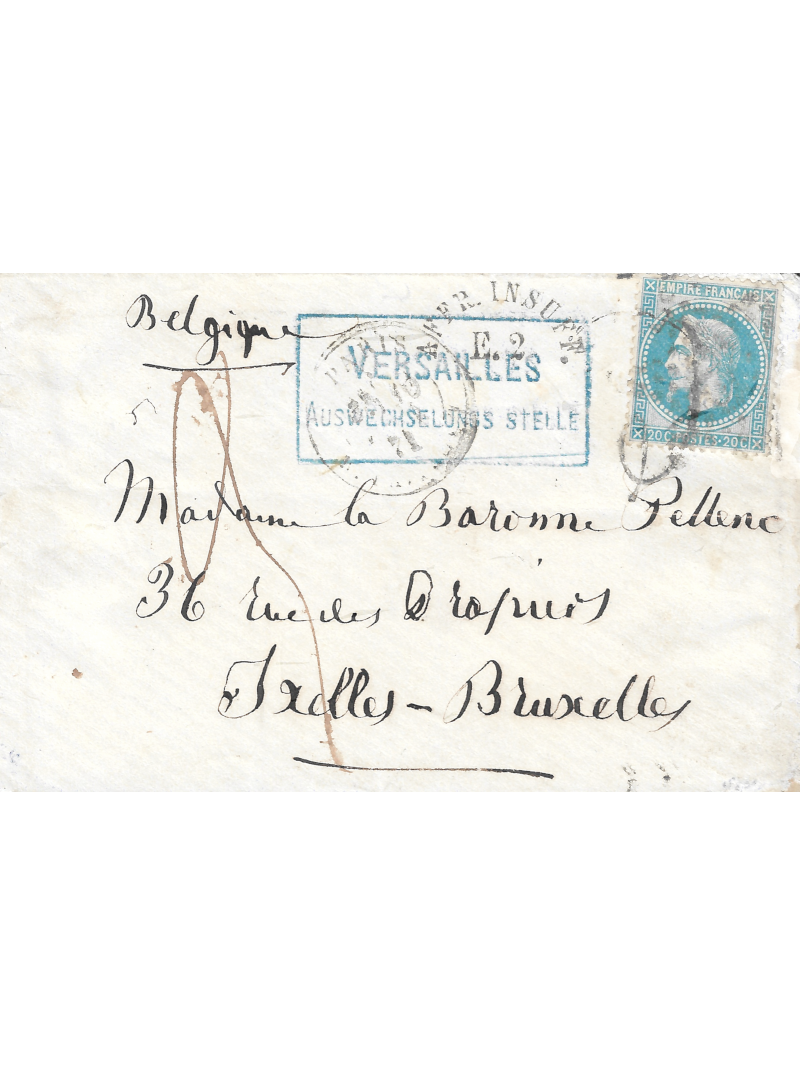 Belgique
AFFR. INSUFF.
E. 2
PARIS
71
VERSAILLES
AUSWECHSELUNGS STELLE
EMPIRE FRANÇAIS
20 C POSTES 20 C
Madame la Baronne Pellenc
36 rue des Drapiers
Ixelles - Bruxelles